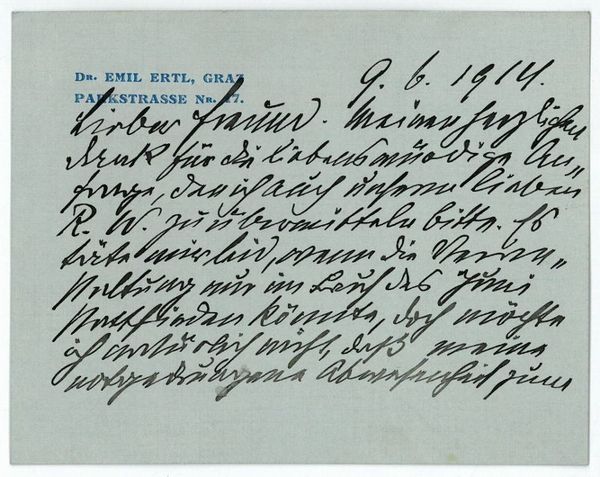 DR. EMIL ERTL, GRAZ
PARKSTRASSE NR. 17.
9. 6. 1914.
Lieber Freund. Meinen herzlichen
Dank für die liebenswürdige An-
frage, den ich auch unserm lieben
R. W. zu übermitteln bitte. Es
täte mir leid, wenn die Veran-
staltung nur im Lauf des Juni
stattfinden könnte, doch möchte
ich natürlich nicht, daß meine
notgedrungene Abwesenheit zum